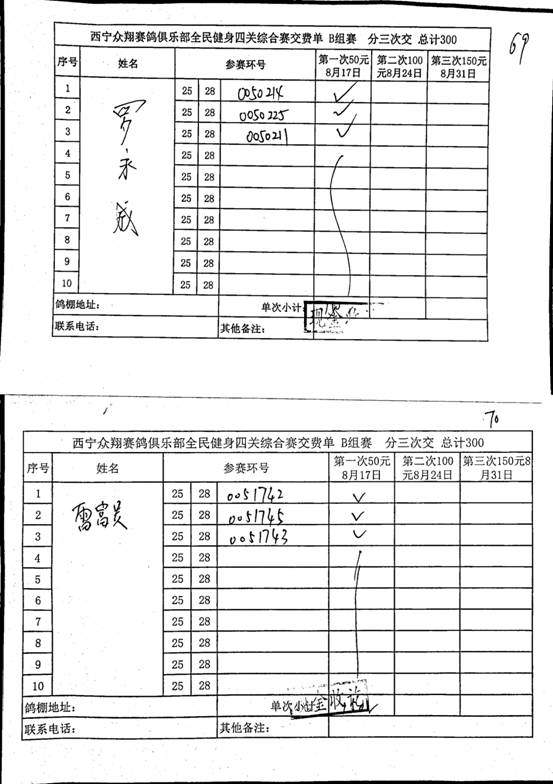 69
西宁众翔赛鸽俱乐部全民健身四关综合赛交费单 B组赛 分三次交 总计300
序号 姓名 参赛环号 第一次50元8月17日 第二次100元8月24日 第三次150元8月31日
1 25 28 0050214 ✓
2 25 28 0050225 ✓
3 25 28 0050211 ✓
4 25 28
5 25 28
6 25 28
7 25 28
8 25 28
9 25 28
10 25 28
罗永成
鸽棚地址： 单次小计：
联系电话： 其他备注： 现金
70
西宁众翔赛鸽俱乐部全民健身四关综合赛交费单 B组赛 分三次交 总计300
序号 姓名 参赛环号 第一次50元8月17日 第二次100元8月24日 第三次150元8月31日
1 25 28 0051742 ✓
2 雷富贵 25 28 0051745 ✓
3 25 28 0051743 ✓
4 25 28
5 25 28
6 25 28
7 25 28
8 25 28
9 25 28
10 25 28
鸽棚地址： 单次小计 金收讫
联系电话： 其他备注：